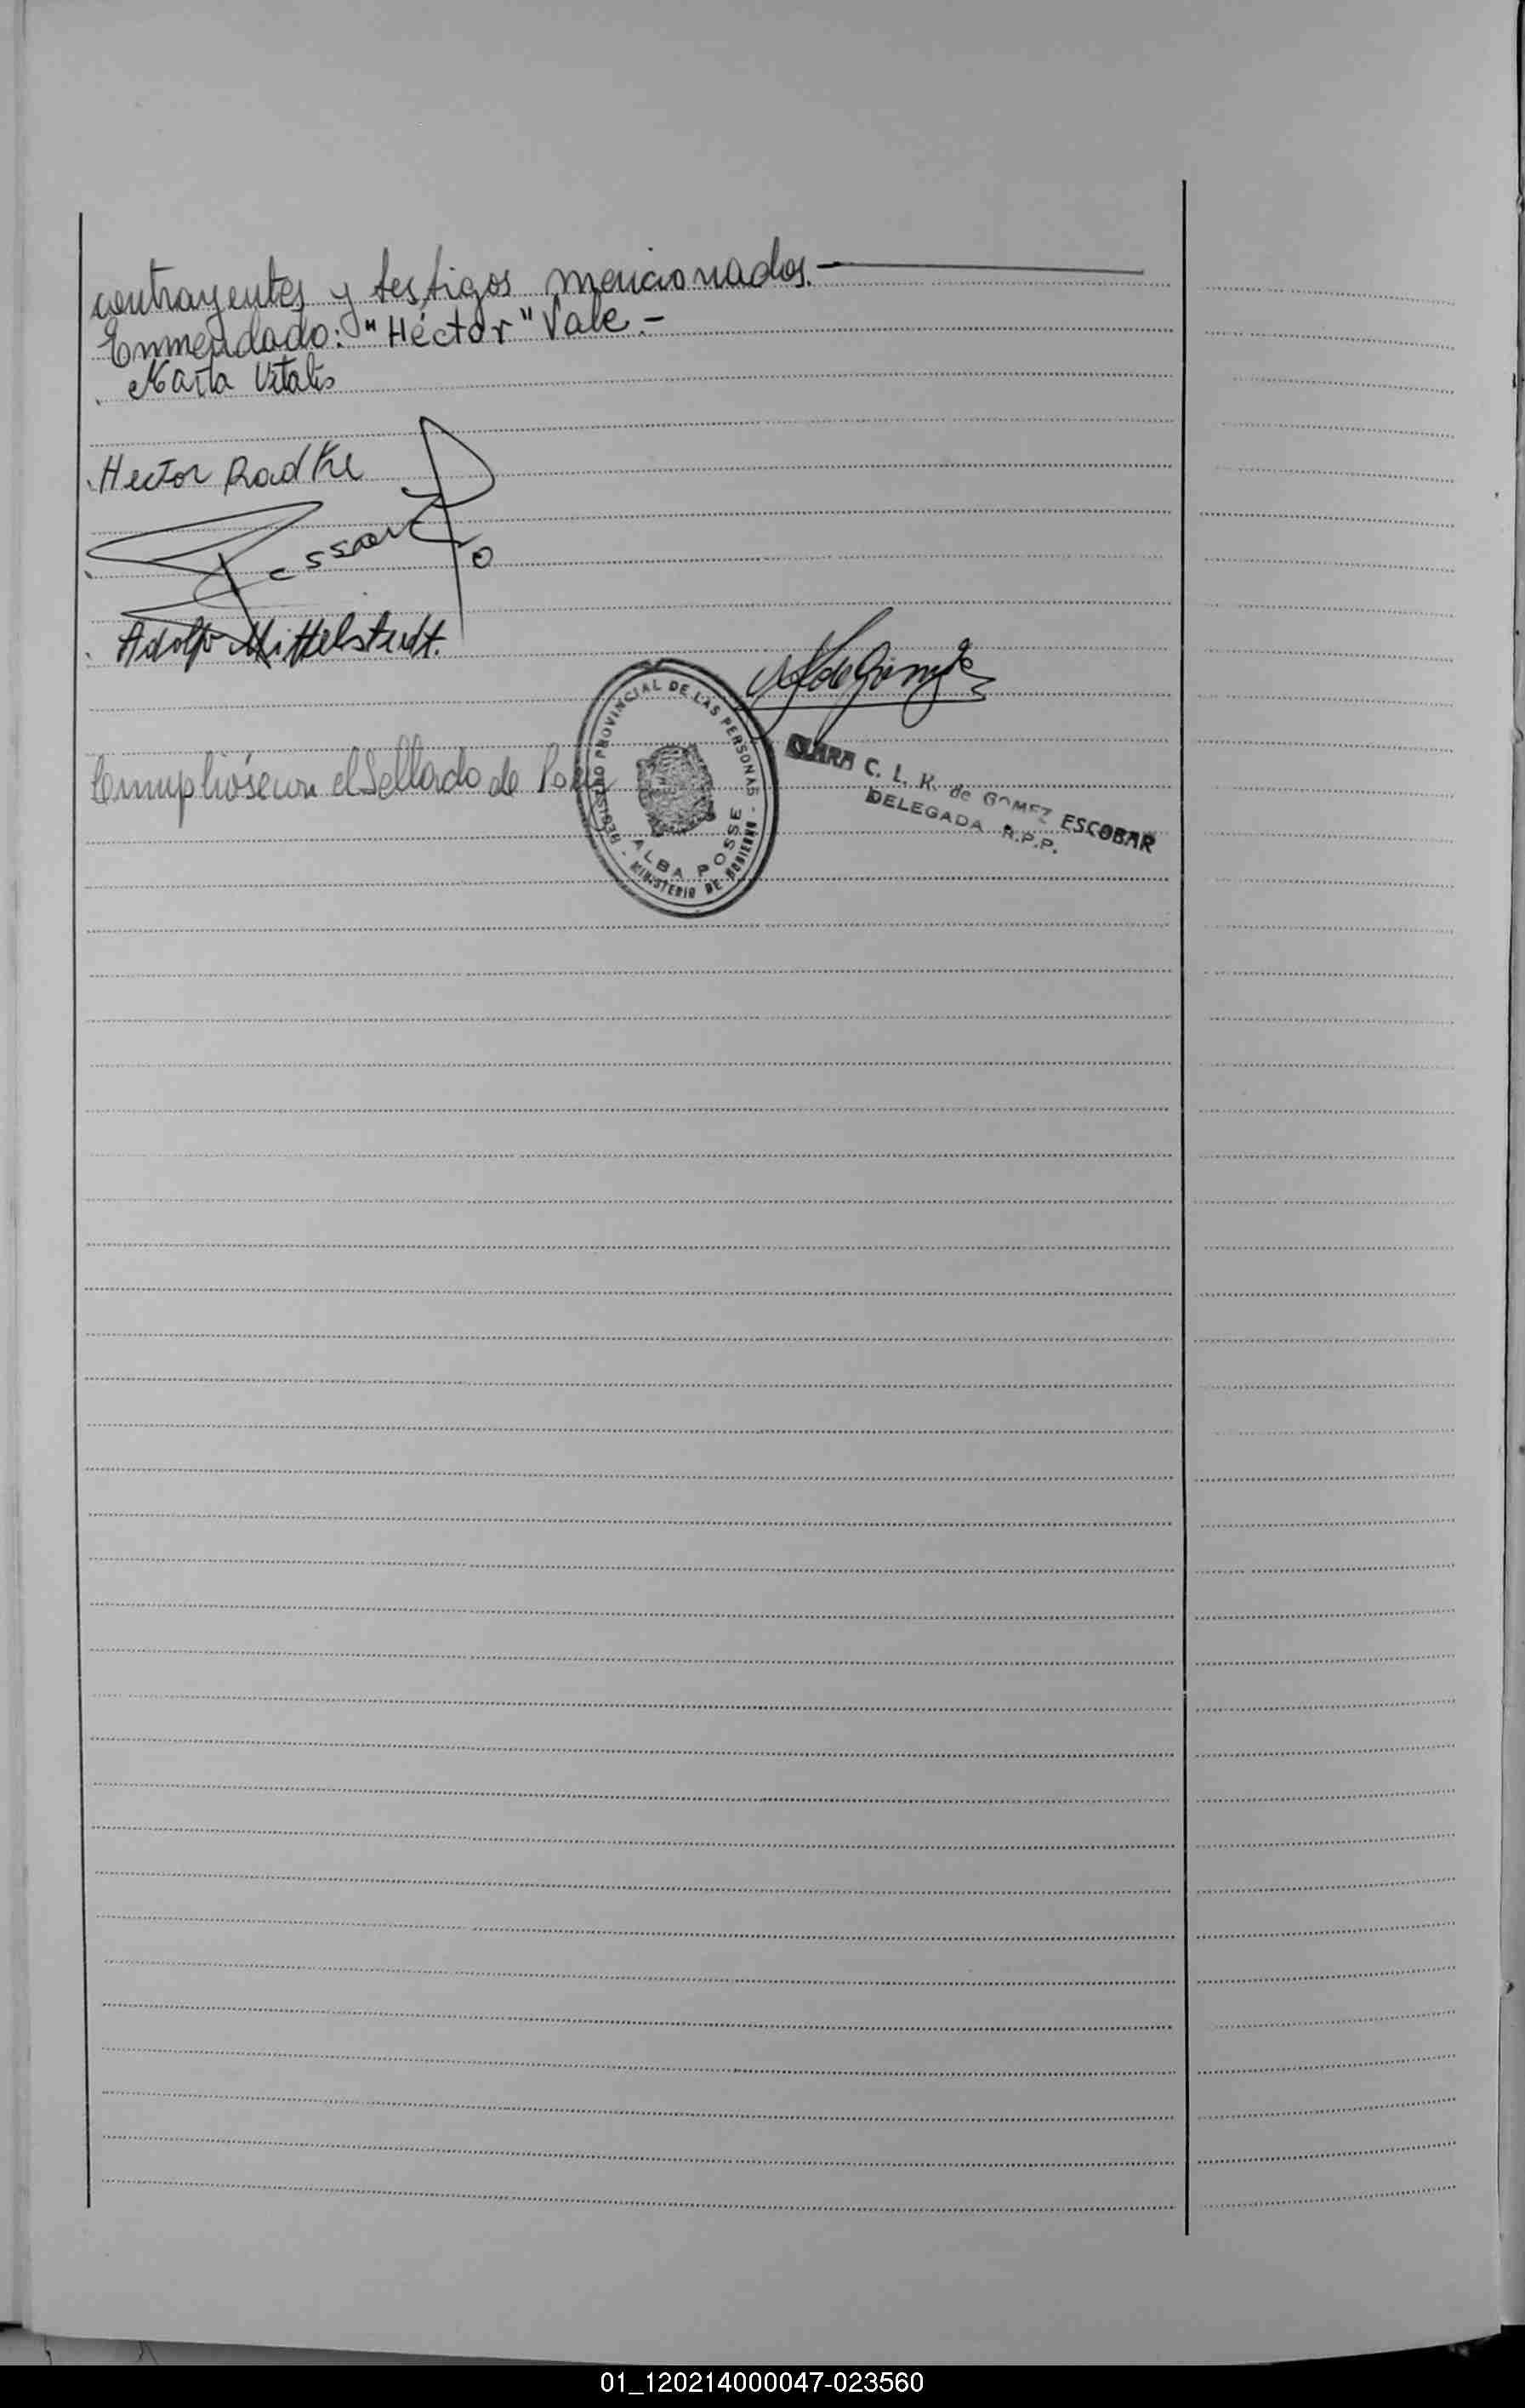 contrayentes y testigos mencionados.-
Enmendado: "Héctor" Vale.-
Marta Vitalis
Hector Radke
Adolfo Mittelstedt.
Cumplióse con el Sellado de
REGISTRO PROVINCIAL DE LAS PERSONAS - MINISTERIO DE GOBIERNO -
ALBA POSSE
CLARA C. L. K. de GOMEZ ESCOBAR
DELEGADA R.P.P.
01_120214000047-023560